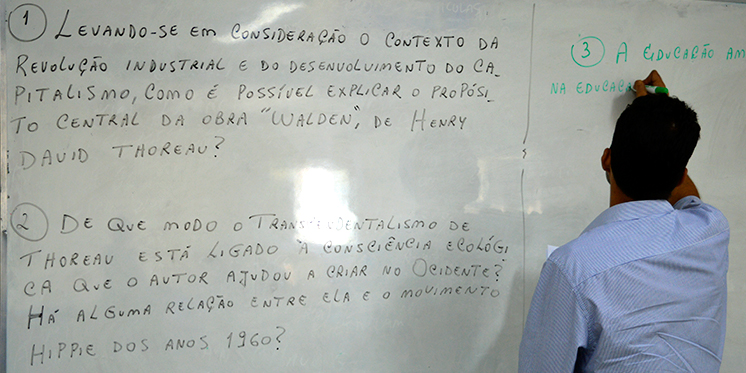 1 LEVANDO-SE EM CONSIDERAÇÃO O CONTEXTO DA
REVOLUÇÃO INDUSTRIAL E DO DESENVOLVIMENTO DO CA_
PITALISMO, COMO É POSSÍVEL EXPLICAR O PROPÓSI_
TO CENTRAL DA OBRA "WALDEN", DE HENRY
DAVID THOREAU?
2 DE QUE MODO O TRANSCENDENTALISMO DE
THOREAU ESTÁ LIGADO À CONSCIÊNCIA ECOLÓGI
CA QUE O AUTOR AJUDOU A CRIAR NO OCIDENTE?
HÁ ALGUMA RELAÇÃO ENTRE ELA E O MOVIMENTO
HIPPIE DOS ANOS 1960?
3 A EDUCAÇÃO AM
NA